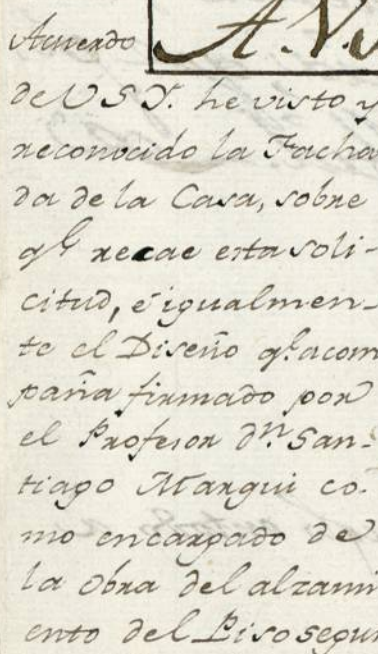 Acuerdo
A. V. S
de V S Y. he visto y
reconocido la Facha
da de la Casa, sobre
qᵉ recae esta soli-
citud, é igualmen-
te el Diseño qᵉ acom
paña firmado por
el Profesor dⁿ San-
tiago Margui co-
mo encargado de
la obra del alzami
ento del Piso segun